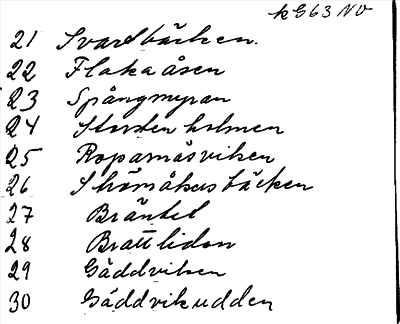 kG63 NV
21 Svartbäcken.
22 Flakaåsen
23 Spångmyran
24 holmen
25 Roparnäsviken
26 bäcken
27 Bräntet
28 Brattliden
29 Gäddviken
30 Gäddvikudden